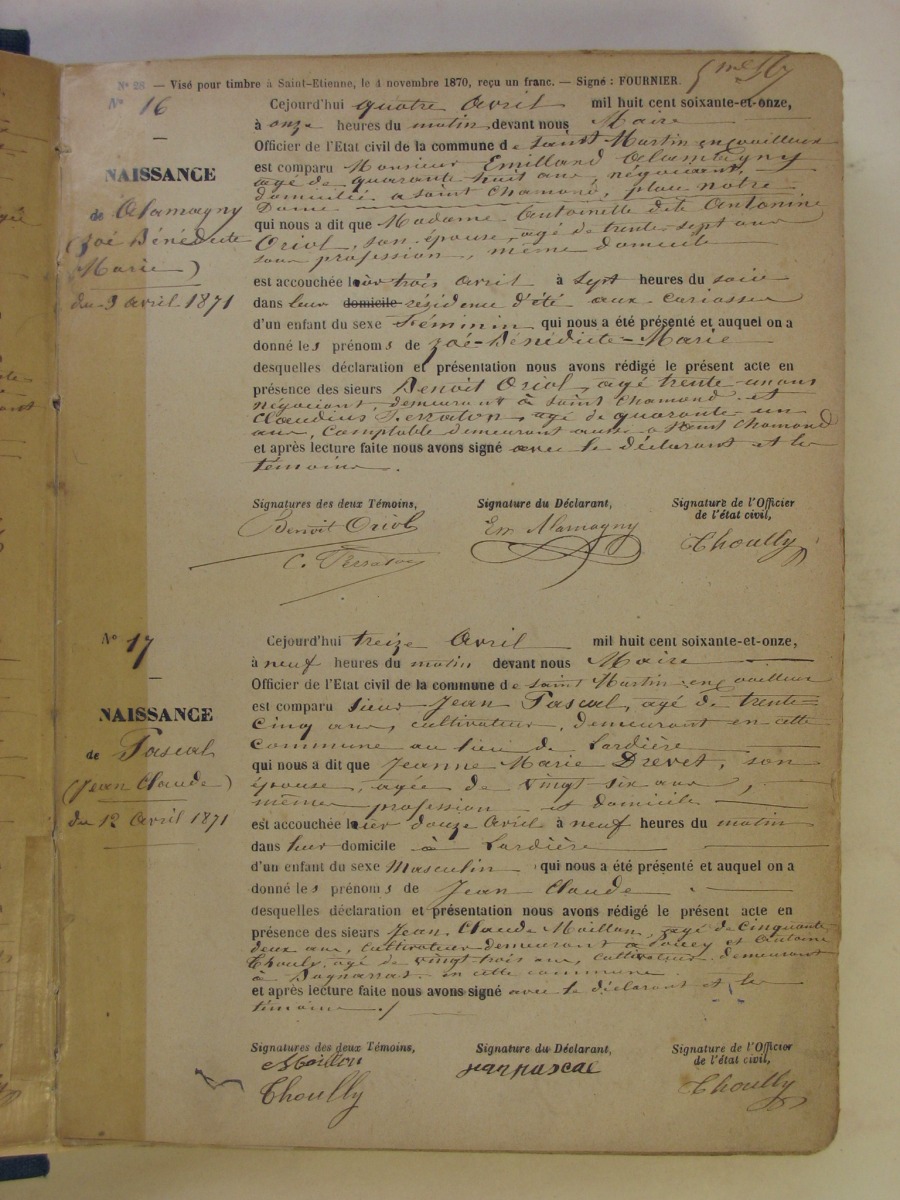 5me
N° 28 — Visé pour timbre à Saint-Etienne, le 4 novembre 1870, reçu un franc. — Signé : FOURNIER.
N° 16
NAISSANCE
de Alamagny
Zoé Bénédicte
Marie)
du 3 avril 1871
Cejourd'hui quatre Avril mil huit cent soixante-et-onze,
à onze heures du matin devant nous Maire
Officier de l'Etat civil de la commune de Saint Martin en Coailleux
est comparu Monsieur Emilland Alamagny
agé de quarante huit ans, négociant,
domicilié à saint Chamond, place notre
Dame
qui nous a dit que Madame Antoinette dite Antonine
Oriol, son épouse, agé de trente sept ans
sans profession, même domicile
est accouchée hier trois avril à Sept heures du soir
dans leur domicile résidence d'été aux
d'un enfant du sexe Féminin qui nous a été présenté et auquel on a
donné les prénoms de Zoé-Bénédicte-Marie
desquelles déclaration et présentation nous avons rédigé le présent acte en
présence des sieurs Benoit Oriol, agé trente un ans
négociant, demeurant à saint Chamond, et
Claudius Ferraton, agé de quarante un
ans, Comptable demeurant aussi à Saint Chamond
et après lecture faite nous avons signé avec le déclarant et les
témoins.
Signatures des deux Témoins,
Signature du Déclarant,
Signature de l'Officier
de l'état civil,
Benoit Oriol
Em Alamagny
Choully
C. Ferraton
N° 17
NAISSANCE
de Pascal
(Jean Claude)
du 12 Avril 1871
Cejourd'hui treize Avril mil huit cent soixante-et-onze,
à neuf heures du matin devant nous Maire
Officier de l'Etat civil de la commune de Saint Martin en Coailleux
est comparu sieur Jean Pascal, agé de trente=
cinq ans, cultivateur, demeurant en cette
Commune au lieu de Lardière
qui nous a dit que Jeanne Marie Drevet, son
épouse, agée de vingt six ans,
même profession et domicile
est accouchée hier douze Avril à neuf heures du matin
dans leur domicile à Lardière
d'un enfant du sexe Masculin qui nous a été présenté et auquel on a
donné les prénoms de Jean Claude
desquelles déclaration et présentation nous avons rédigé le présent acte en
présence des sieurs Jean Claude Moillon, agé de Cinquante
deux ans, Cultivateur demeurant à et Antoine
Chouly, agé de vingt trois ans, cultivateur demeurant
à en cette commune
et après lecture faite nous avons signé avec le déclarant et les
témoins./
Signatures des deux Témoins,
Signature du Déclarant,
Signature de l'Officier
de l'état civil,
jean pascal
Choully
Choully